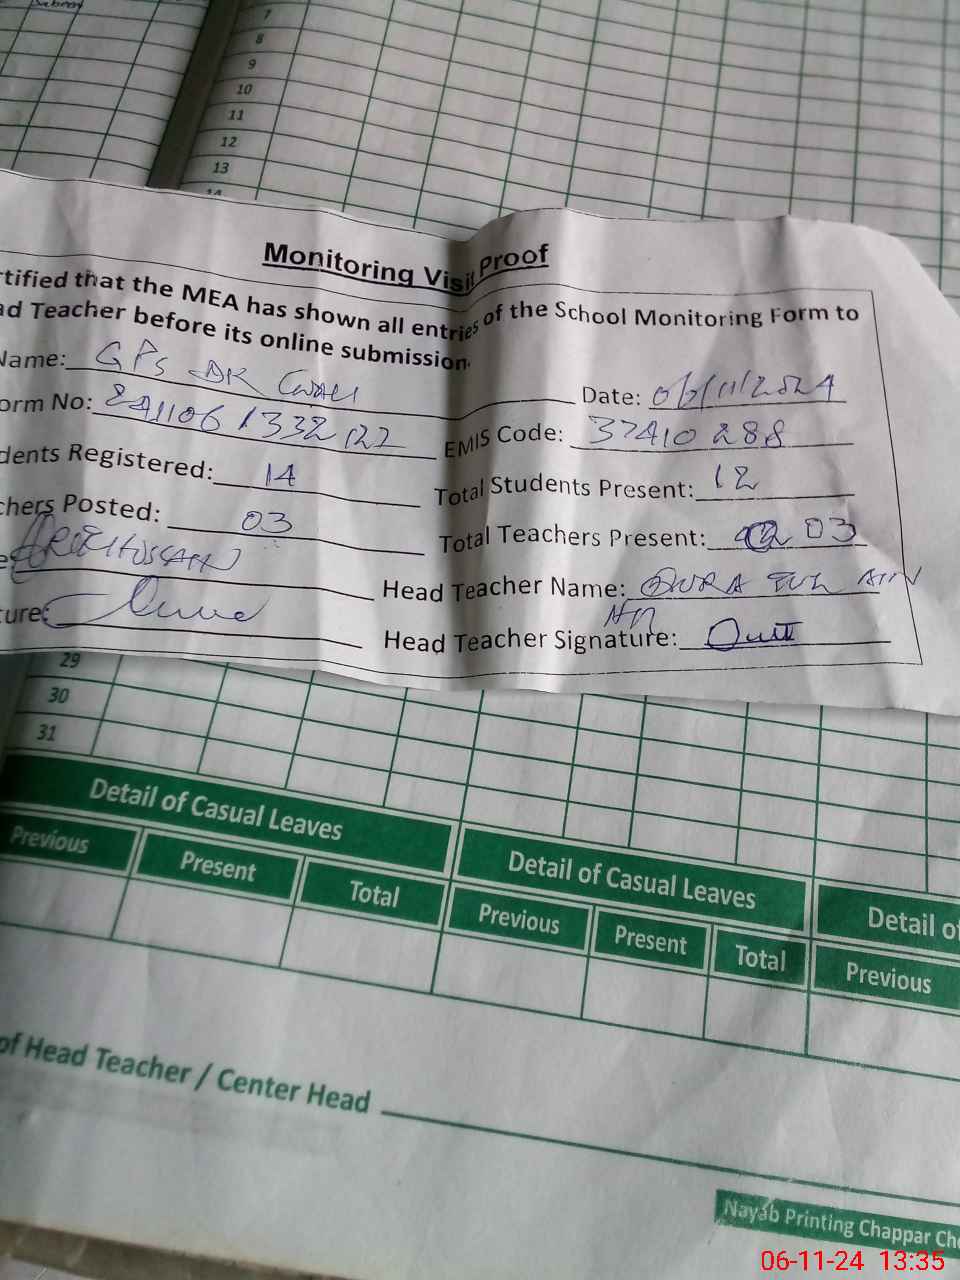 7
8
9
10
11
12
13
14
Monitoring Visit Proof
rtified that the MEA has shown all entries of the School Monitoring Form to
ad Teacher before its online submission.
Name: GPS DK Date: 06/11/2024
orm No: EMIS Code: 37410288
dents Registered: 14 Total Students Present: 12
chers Posted: 03 Total Teachers Present: 03
HUSSAIN Head Teacher Name: QURA TUL AIN
ture: Head Teacher Signature:
29
30
31
Detail of Casual Leaves Detail of Casual Leaves Detail of
Previous Present Total Previous Present Total Previous
of Head Teacher / Center Head
Nayab Printing Chappar Ch
06-11-24 13:35